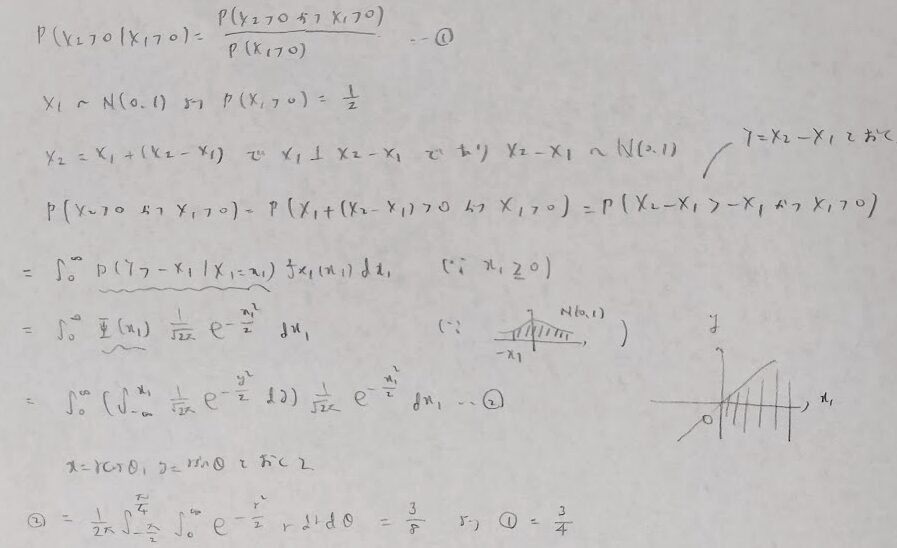 P(X₂>0|X₁>0) = P(X₂>0 かつ X₁>0) / P(X₁>0) …①
X₁ ~ N(0,1) より P(X₁>0) = 1/2
X₂ = X₁ + (X₂ - X₁) で X₁ ⊥ X₂ - X₁ であり X₂ - X₁ ~ N(0,1)
Y = X₂ - X₁ とおく
P(X₂>0 かつ X₁>0) = P(X₁ + (X₂ - X₁) > 0 かつ X₁>0) = P(X₂ - X₁ > -X₁ かつ X₁>0)
= ∫₀^∞ P(Y > -X₁ | X₁ = x₁) f_{X₁}(x₁) dx₁ (∵ x₁ ≥ 0)
= ∫₀^∞ Φ(x₁) 1/√2π e^{-x₁²/2} dx₁ (∵ N(0,1) -x₁ )
= ∫₀^∞ (∫_{-∞}^{x₁} 1/√2π e^{-y²/2} dy) 1/√2π e^{-x₁²/2} dx₁ …②
y
x₁
O
x = r cosθ, y = r sinθ とおくと
② = 1/2π ∫_{-π/2}^{π/4} ∫₀^∞ e^{-r²/2} r dr dθ = 3/8 より ① = 3/4